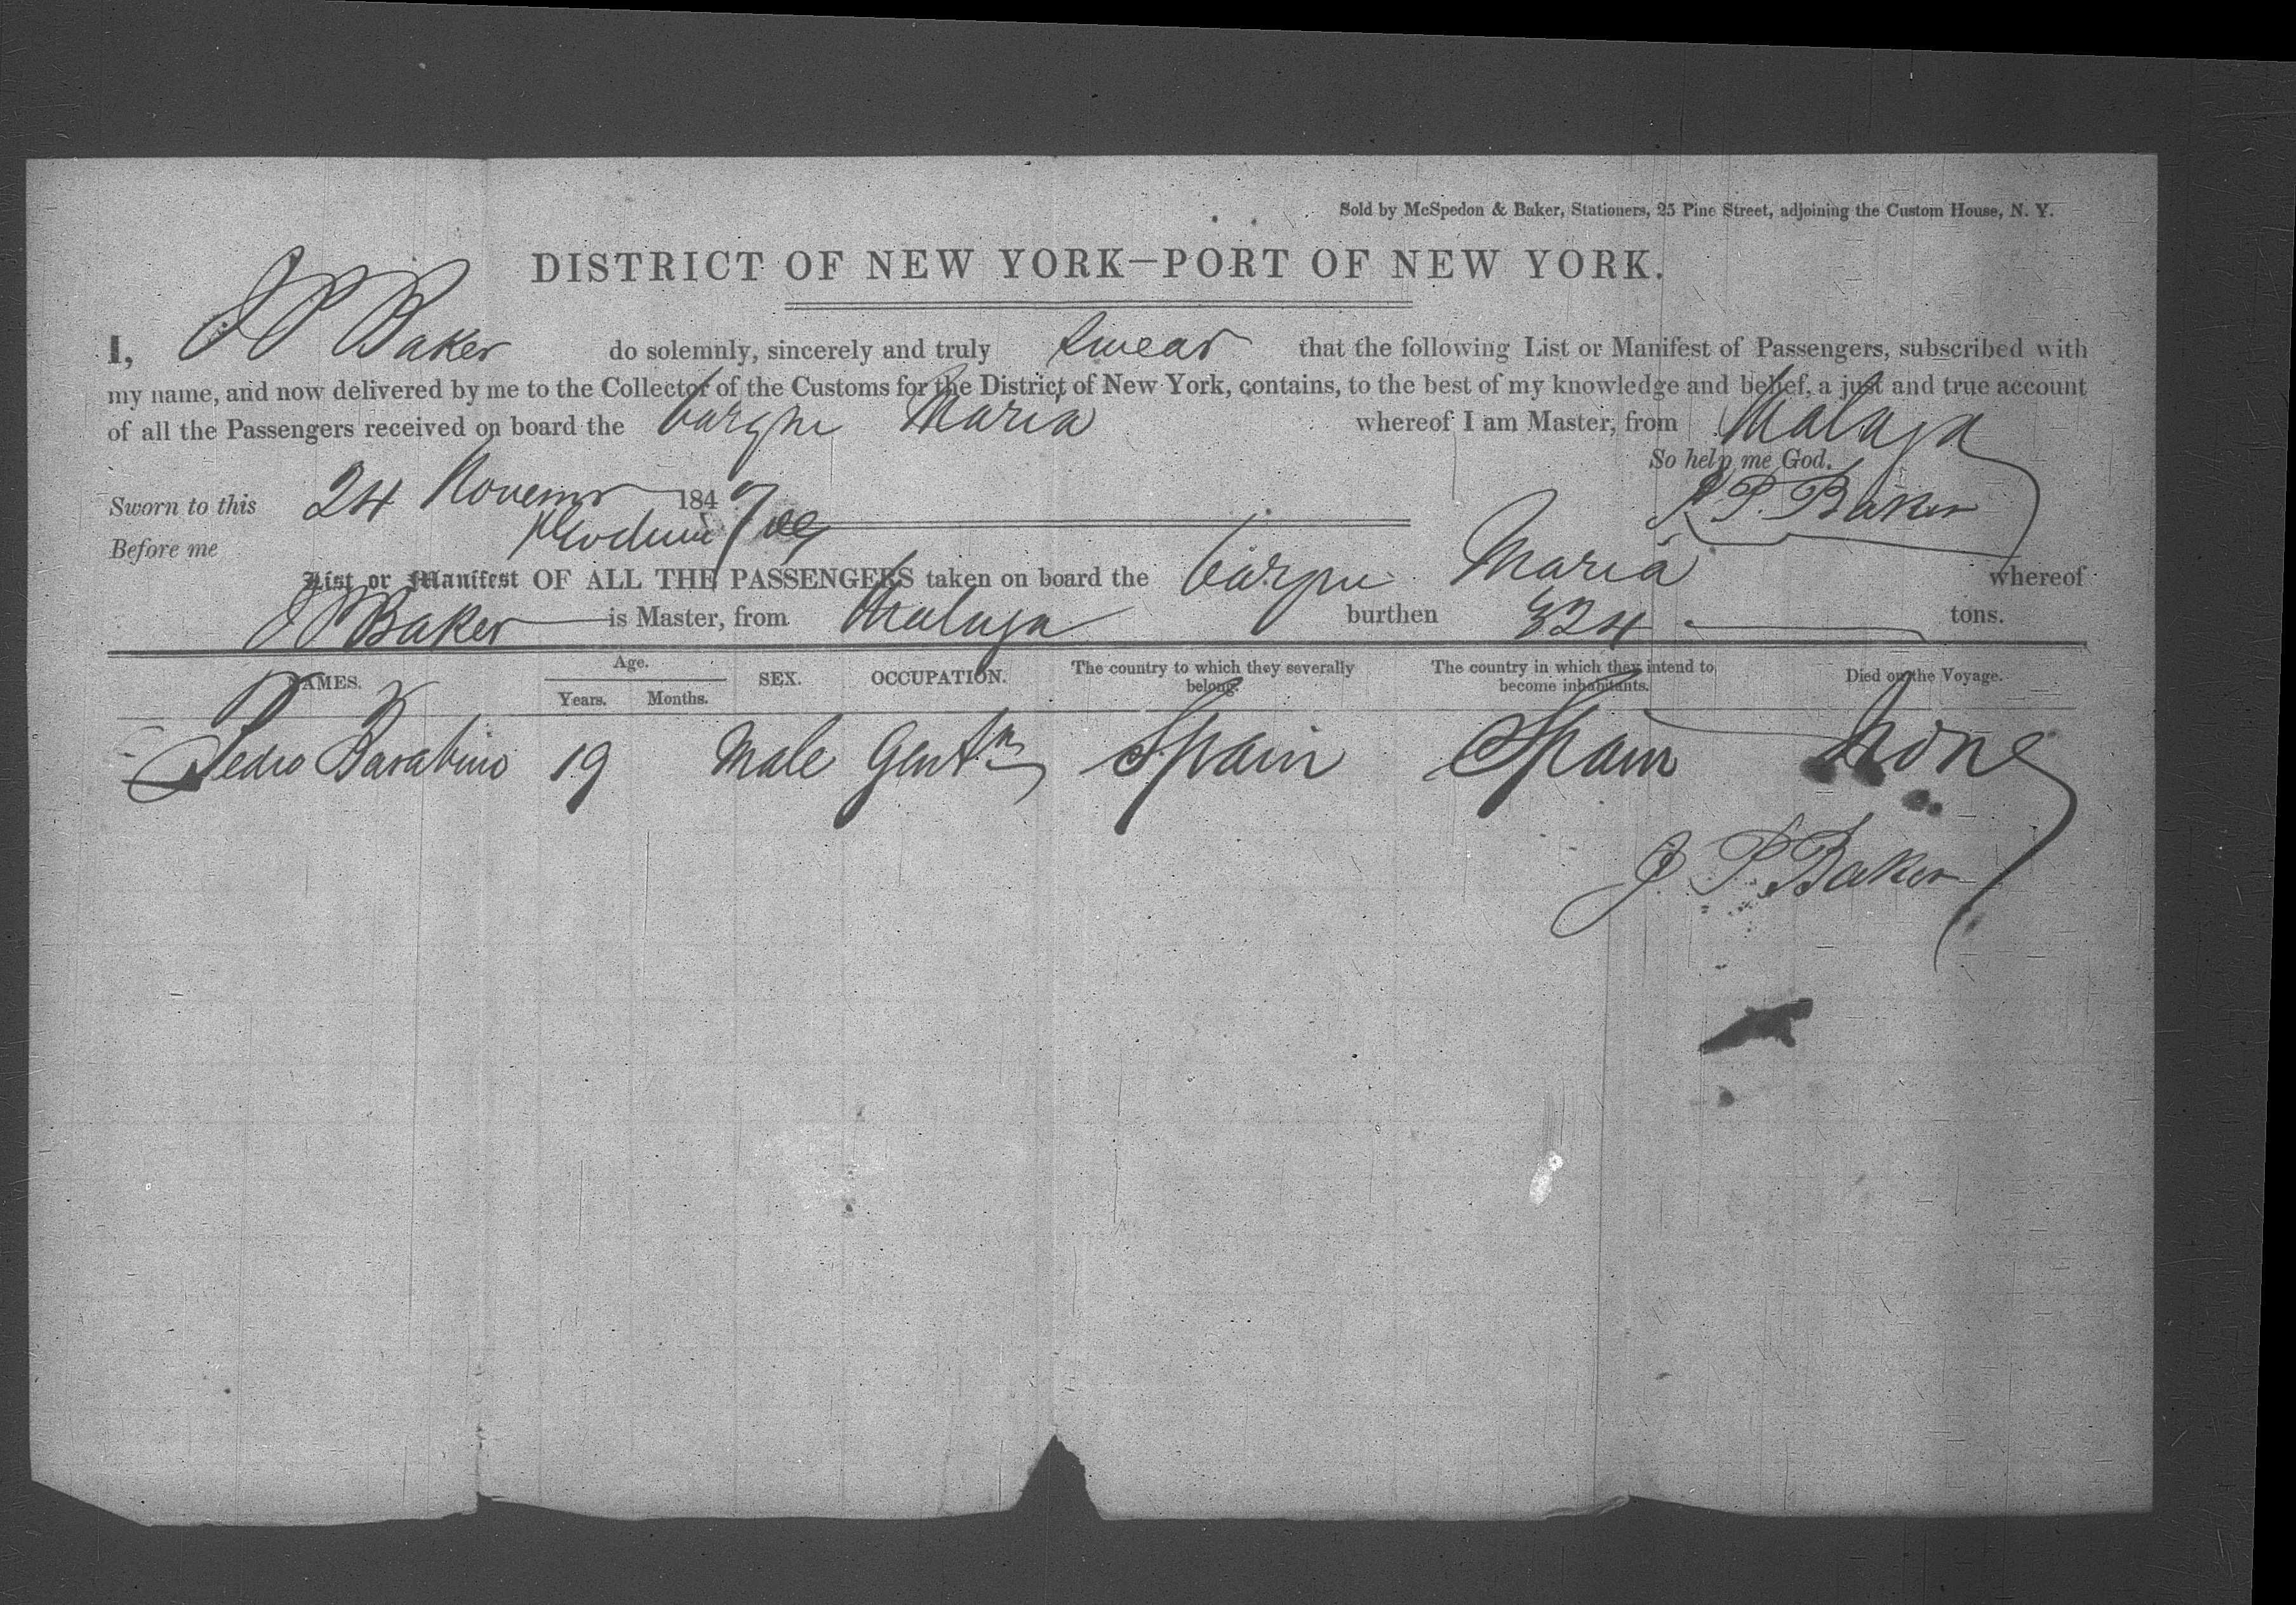 Sold by McSpedon & Baker, Stationers, 25 Pine Street, adjoining the Custom House, N. Y.
DISTRICT OF NEW YORK—PORT OF NEW YORK.
I, J P Baker do solemnly, sincerely and truly swear that the following List or Manifest of Passengers, subscribed with
my name, and now delivered by me to the Collector of the Customs for the District of New York, contains, to the best of my knowledge and belief, a just and true account
of all the Passengers received on board the barque Maria whereof I am Master, from Malaga
So help me God.
Sworn to this 24 Novemr 1847 J. P. Baker
Before me
List or Manifest OF ALL THE PASSENGERS taken on board the barque Maria whereof
J P Baker is Master, from Malaga burthen 324 tons.
NAMES. Age. Years. Months. SEX. OCCUPATION. The country to which they severally belong. The country in which they intend to become inhabitants. Died on the Voyage.
Pedro Barabino 19 Male Gentm Spain Spain None
J. P. Baker